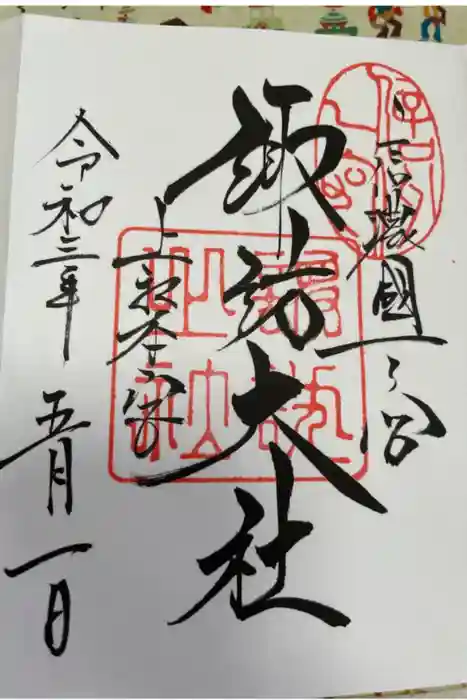 信濃國一之宮
諏訪大社
上社本宮
令和三年 五月一日